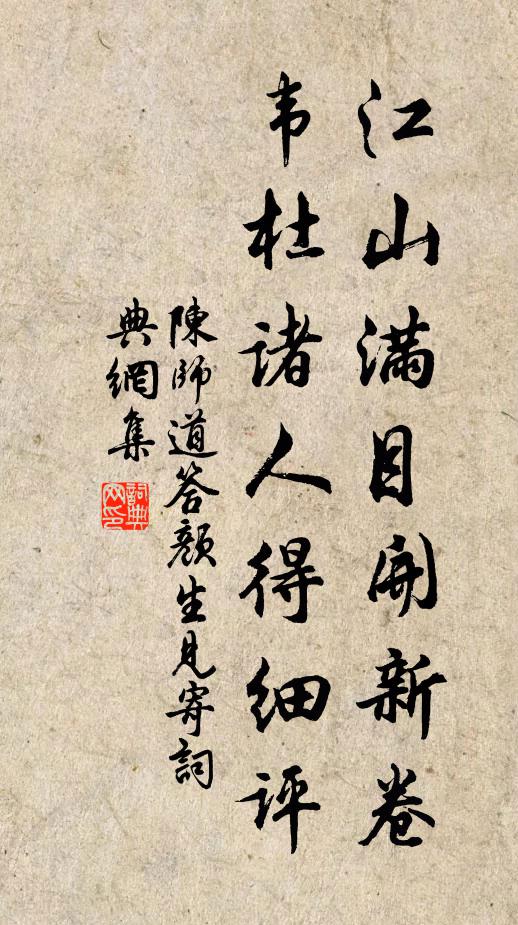 江山满目开新卷
韦杜诸人得细评
陳師道答顏生見寄詞
典網集
詞典网印